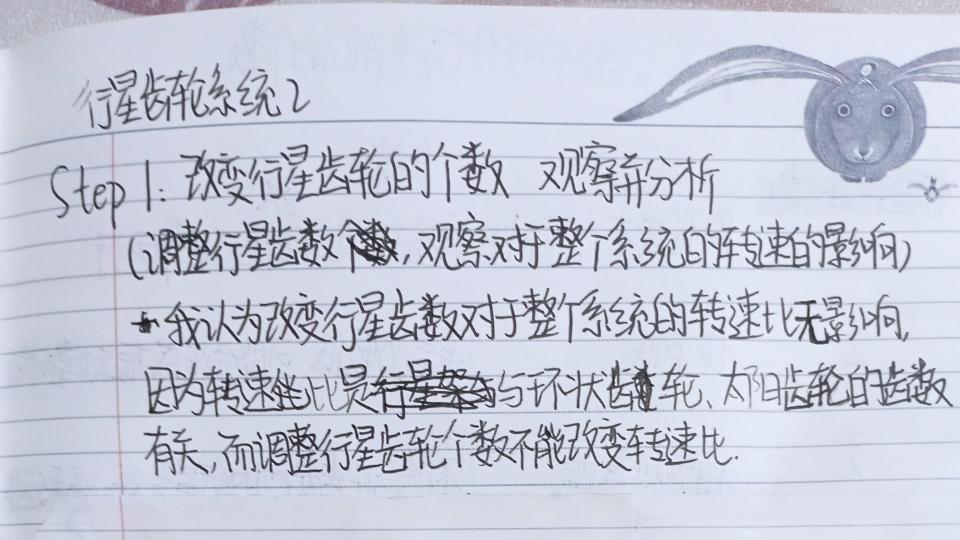 行星齿轮系统2
Step 1: 改变行星齿轮的个数 观察并分析
(调整行星齿数, 观察对于整个系统的转速的影响)
我认为改变行星齿数对于整个系统的转速比无影响,
因为转速比是与环状齿轮、太阳齿轮的齿数
有关, 而调整行星齿轮个数不能改变转速比.